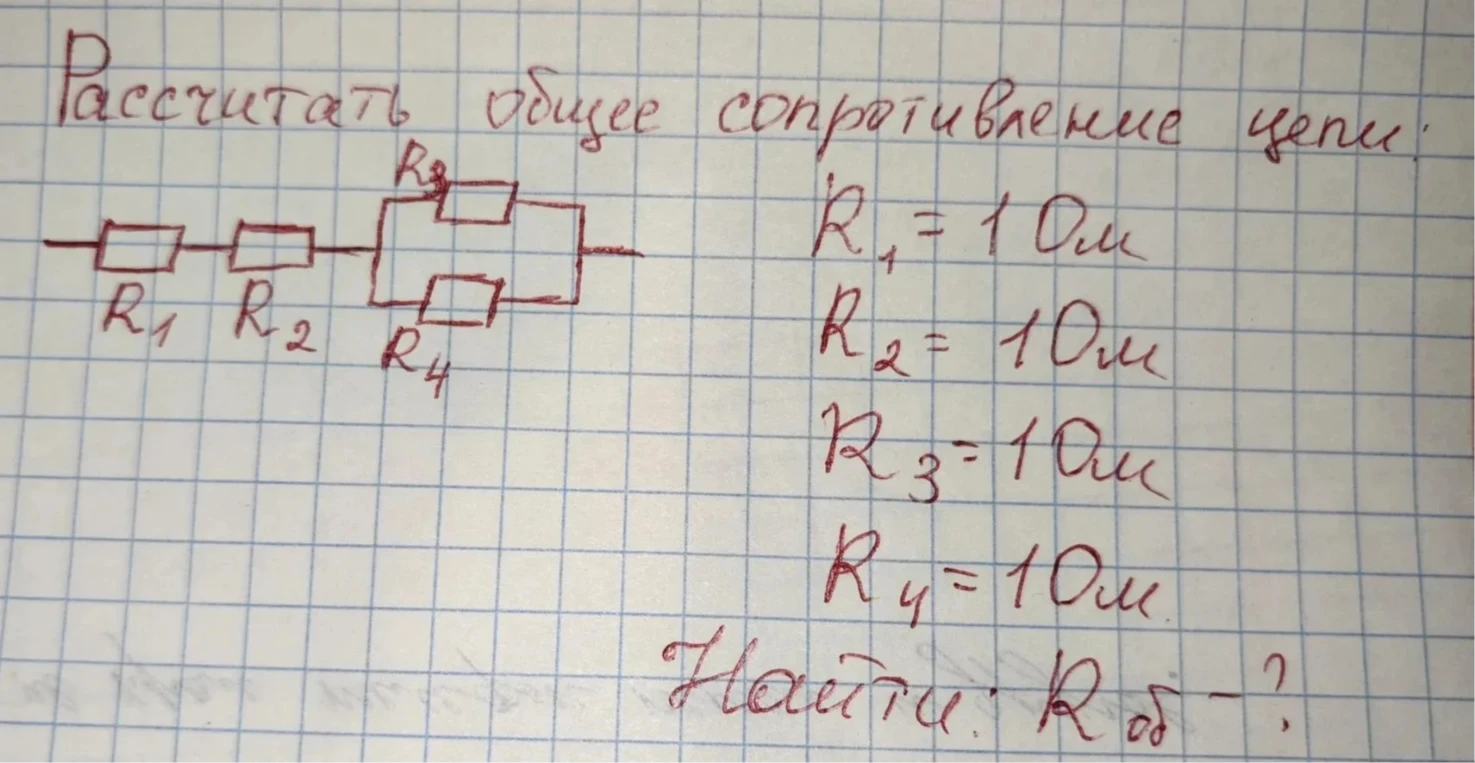 Рассчитать общее сопротивление цепи:
R3
R1 R2
R4
R1 = 1 Ом
R2 = 1 Ом
R3 = 1 Ом
R4 = 1 Ом.
Найти: Rоб - ?